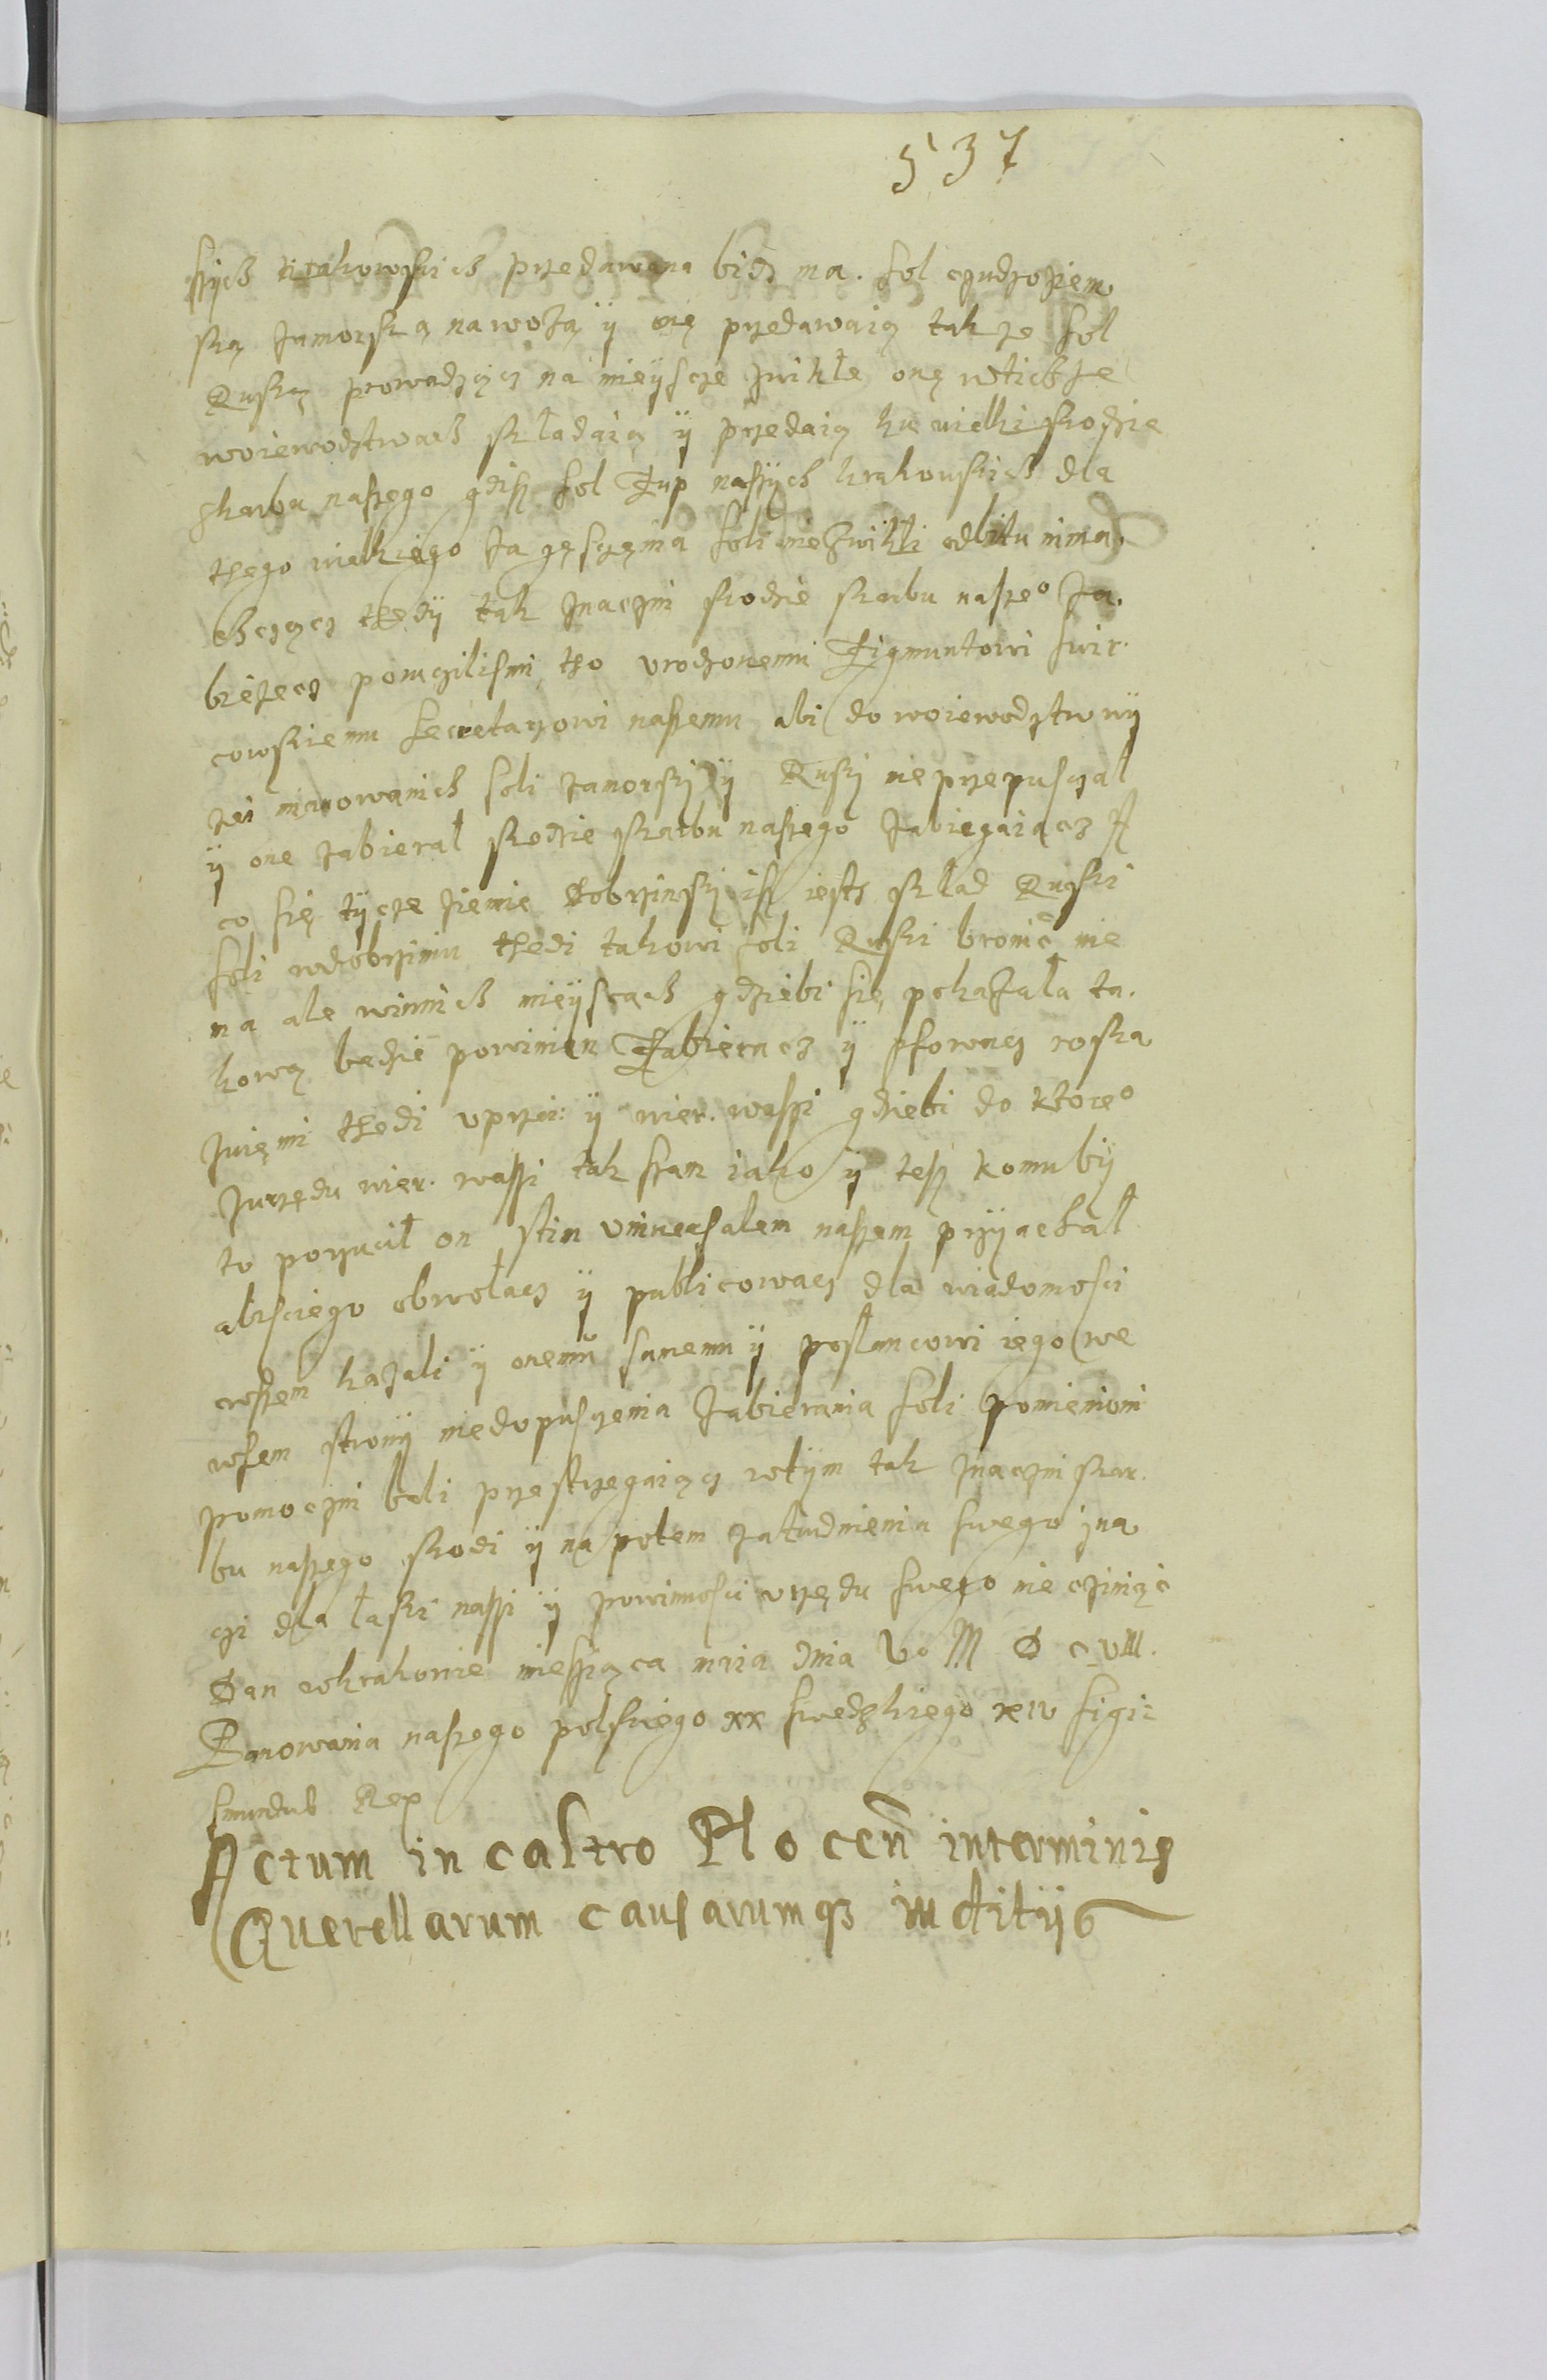 537
szych krakowskich przedawana bidz ma. sol czudzoziem
ską zamorską nawożą ÿ onę przedawaią tak ze sol
Ruską prowadzącz na mieÿscze zwikłe onę wtichze
woiewodztwach składaią ÿ przedaią ku wielki skodzie
skarbu naszego gdisz sol Zup naszych krakowskich dla
thego wielkiego zagęsczenia soli niezwikłi odbitu nima
chczącz thedÿ tak znaczni skodzie skarbu naszeo za.
biezecz poruczilismi tho vrodzonemu Zigmuntowi swir.
cowskiemu secretarzowi naszemu abi do woiewodztw wÿ
zei mianowanich soli zamorskÿ ÿ Ruskÿ nieprzepusczal
ÿ one zabieral skodzie skarbu naszego zabiegaiącz A
co się tÿcze ziemie Dobrzinskÿ isz iest skład Ruski
soli wdobrziniu thedi takowi soli Ruski bronić nie
ma ale winnich mieÿscach gdziebi się pokazała ta.
kową będzie powinien Zabieracz ÿ
zuięmi thedi vprzei: ÿ wier. waszi gdziebi do ktoreo
zurzędu wier. waszi tak sam iako ÿ tesz komubÿ
to poruczil on stim vniuersalem naszem przÿachał
abisciego obwołacz ÿ publicowacz dla wiadomosci
wszem kazali ÿ onemu samemu ÿ posłancowi iego we
wszem stronÿ niedopusczenia zabierania soli pomienioni
pomoczni beli przestrzegaiącz wtÿm tak znaczni skar.
bu naszego skodi ÿ na potem zatrudnienia swego ina
czi dla łaski naszi ÿ powinnosci vrzędu swego nie cziniącz
Dan wkrakowie miesząca maia dnia Vo M D C VIII.
Panowania naszego polskiego xx swedzkiego xiv sigiz
smundus Rex
Actum in castro Plocen interminis
Querellarum causarumq3 inditÿs